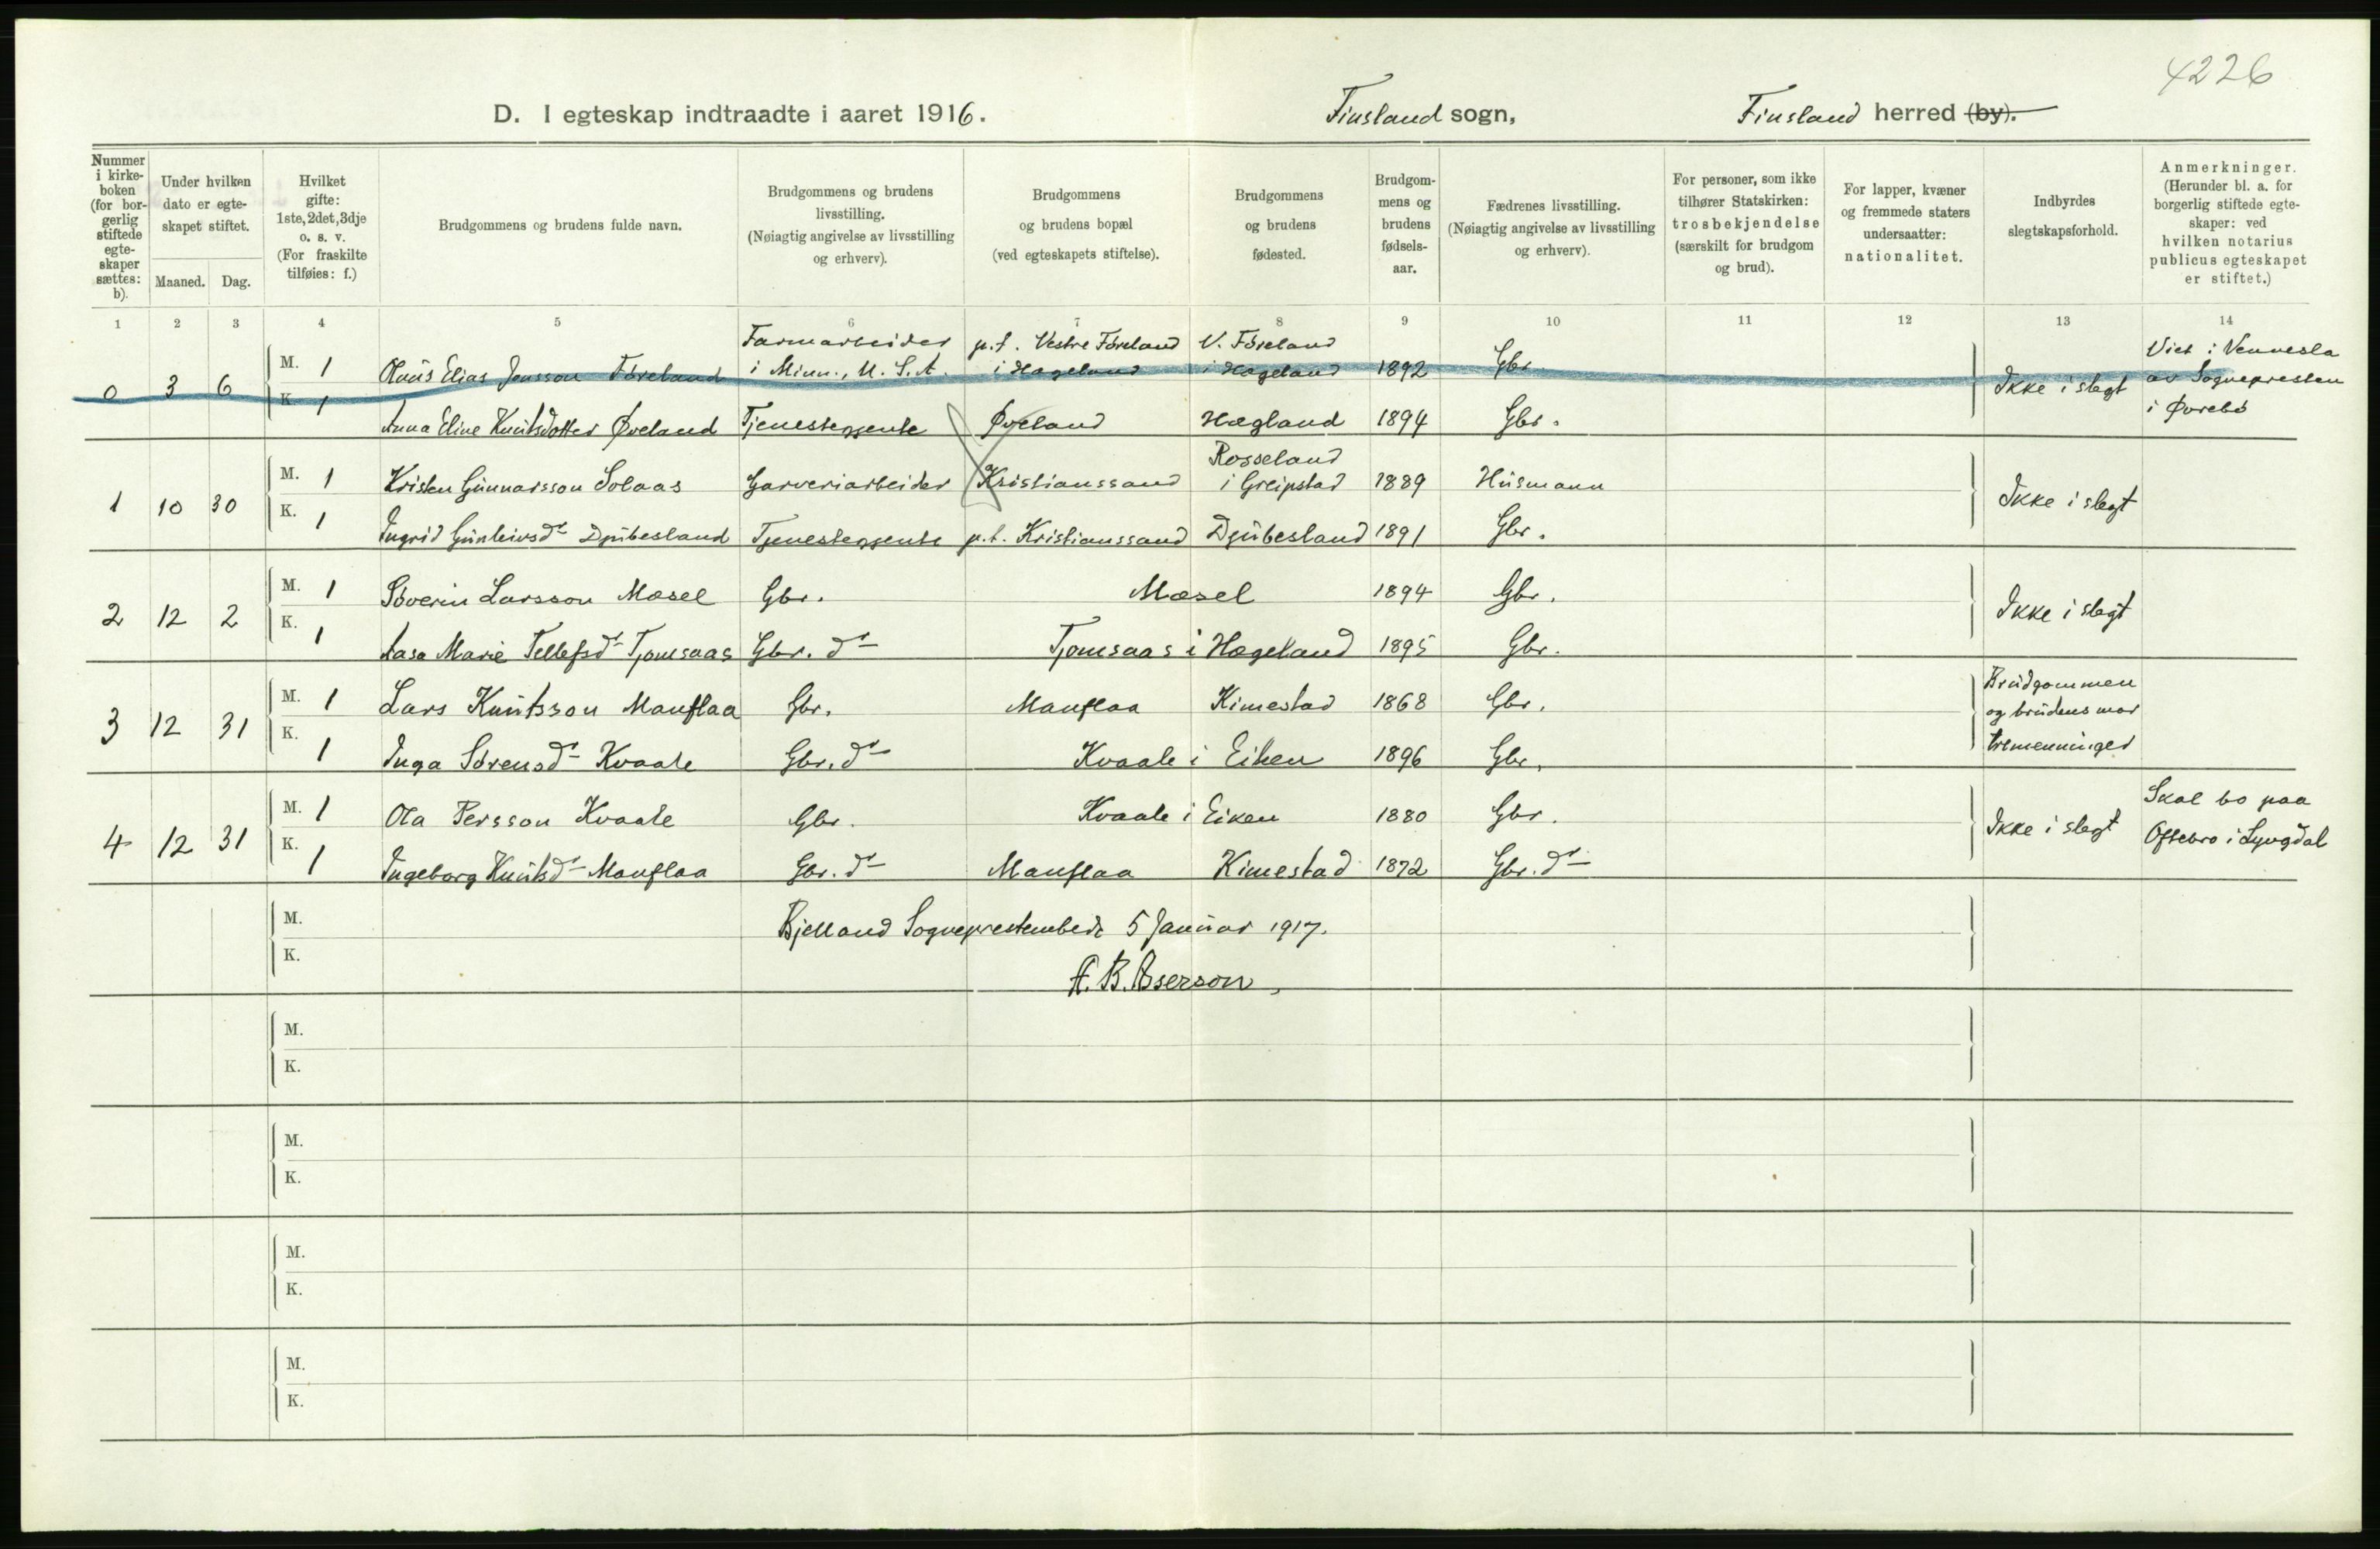 4226
D. I egteskap indtraadte i aaret 1916. Finsland sogn, Finsland herred (by).
Nummer i kirkeboken (for borgerlig stiftede egteskaper sættes: b).
Under hvilken dato er egteskapet stiftet.
Maaned. Dag.
Hvilket gifte: 1ste, 2det, 3dje o. s. v. (For fraskilte tilføies: f.)
Brudgommens og brudens fulde navn.
Brudgommens og brudens livsstilling. (Nøiagtig angivelse av livsstilling og erhverv).
Brudgommens og brudens bopæl (ved egteskapets stiftelse).
Brudgommens og brudens fødested.
Brudgommens og brudens fødselsaar.
Fædrenes livsstilling. (Nøiagtig angivelse av livsstilling og erhverv).
For personer, som ikke tilhører Statskirken: trosbekjendelse (særskilt for brudgom og brud).
For lapper, kvæner og fremmede staters undersaatter: nationalitet.
Indbyrdes slegtskapsforhold.
Anmerkninger. (Herunder bl. a. for borgerlig stiftede egteskaper: ved hvilken notarius publicus egteskapet er stiftet.)
1 2 3 4 5 6 7 8 9 10 11 12 13 14
0 3 6 M. 1 Olaus Elias Jensson Föreland Farmarbeider i Minn., U. S. A. p.t. Vestre Föreland i Hægeland V. Föreland i Hægeland 1892 Gbr. Ikke i slegt Viet i Vennesla av Sognepresten i Øvrebö
K. 1 Anna Eline Knutsdotter Øveland Tjenestegjente Øveland Hægland 1894 Gbr.
1 10 30 M. 1 Kristen Gunnarsson Solaas Garveriarbeider Kristianssand Rosseland i Greipstad 1889 Husmann Ikke i slegt
K. 1 Ingrid Gunleivsdr Djubesland Tjenestegjente p.t. Kristianssand Djubesland 1891 Gbr.
2 12 2 M. 1 Söverin Larsson Mæsel Gbr. Mæsel 1894 Gbr. Ikke i slegt
K. 1 Aasa Marie Tellefsdr Tjomsaas Gbr. dr Tjomsaas i Hægeland 1895 Gbr.
3 12 31 M. 1 Lars Knutsson Manflaa Gbr. Manflaa Kimestad 1868 Gbr. Brudgommen og brudens mor tremenninger
K. 1 Inga Sörensdr Kvaale Gbr. dr Kvaale i Eiken 1896 Gbr.
4 12 31 M. 1 Ola Persson Kvaale Gbr. Kvaale i Eiken 1880 Gbr. Ikke i slegt Skal bo paa Oftebro i Lyngdal
K. 1 Ingeborg Knutsdr Manflaa Gbr. dr Manflaa Kimestad 1872 Gbr. dr
M.
Bjelland Sogneprestembede 5 Januar 1917.
K.
A. B. Aserson
M.
K.
M.
K.
M.
K.
M.
K.